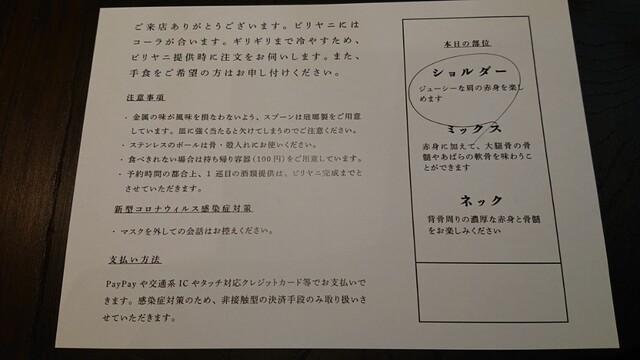 ご来店ありがとうございます。ビリヤニには
コーラが合います。ギリギリまで冷やすため、
ビリヤニ提供時に注文をお伺いします。また、
手食をご希望の方はお申し付けください。
注意事項
・金属の味が風味を損なわないよう、スプーンは琺瑯製をご用意
しています。皿に強く当たると欠けてしまうのでご注意ください。
・ステンレスのボールは骨・殻入れにお使いください。
・食べきれない場合は持ち帰り容器(100円)をご用意しています。
・予約時間の都合上、1巡目の酒類提供は、ビリヤニ完成までと
させていただきます。
新型コロナウィルス感染症対策
・マスクを外しての会話はお控えください。
支払い方法
PayPayや交通系ICやタッチ対応クレジットカード等でお支払いで
きます。感染症対策のため、非接触型の決済手段のみ取り扱いさ
せていただきます。
本日の部位
ショルダー
ジューシーな肩の赤身を楽し
めます
ミックス
赤身に加えて、大腿骨の骨
髄やあばらの軟骨を味わうこ
とができます
ネック
背骨周りの濃厚な赤身と骨髄
をお楽しみください